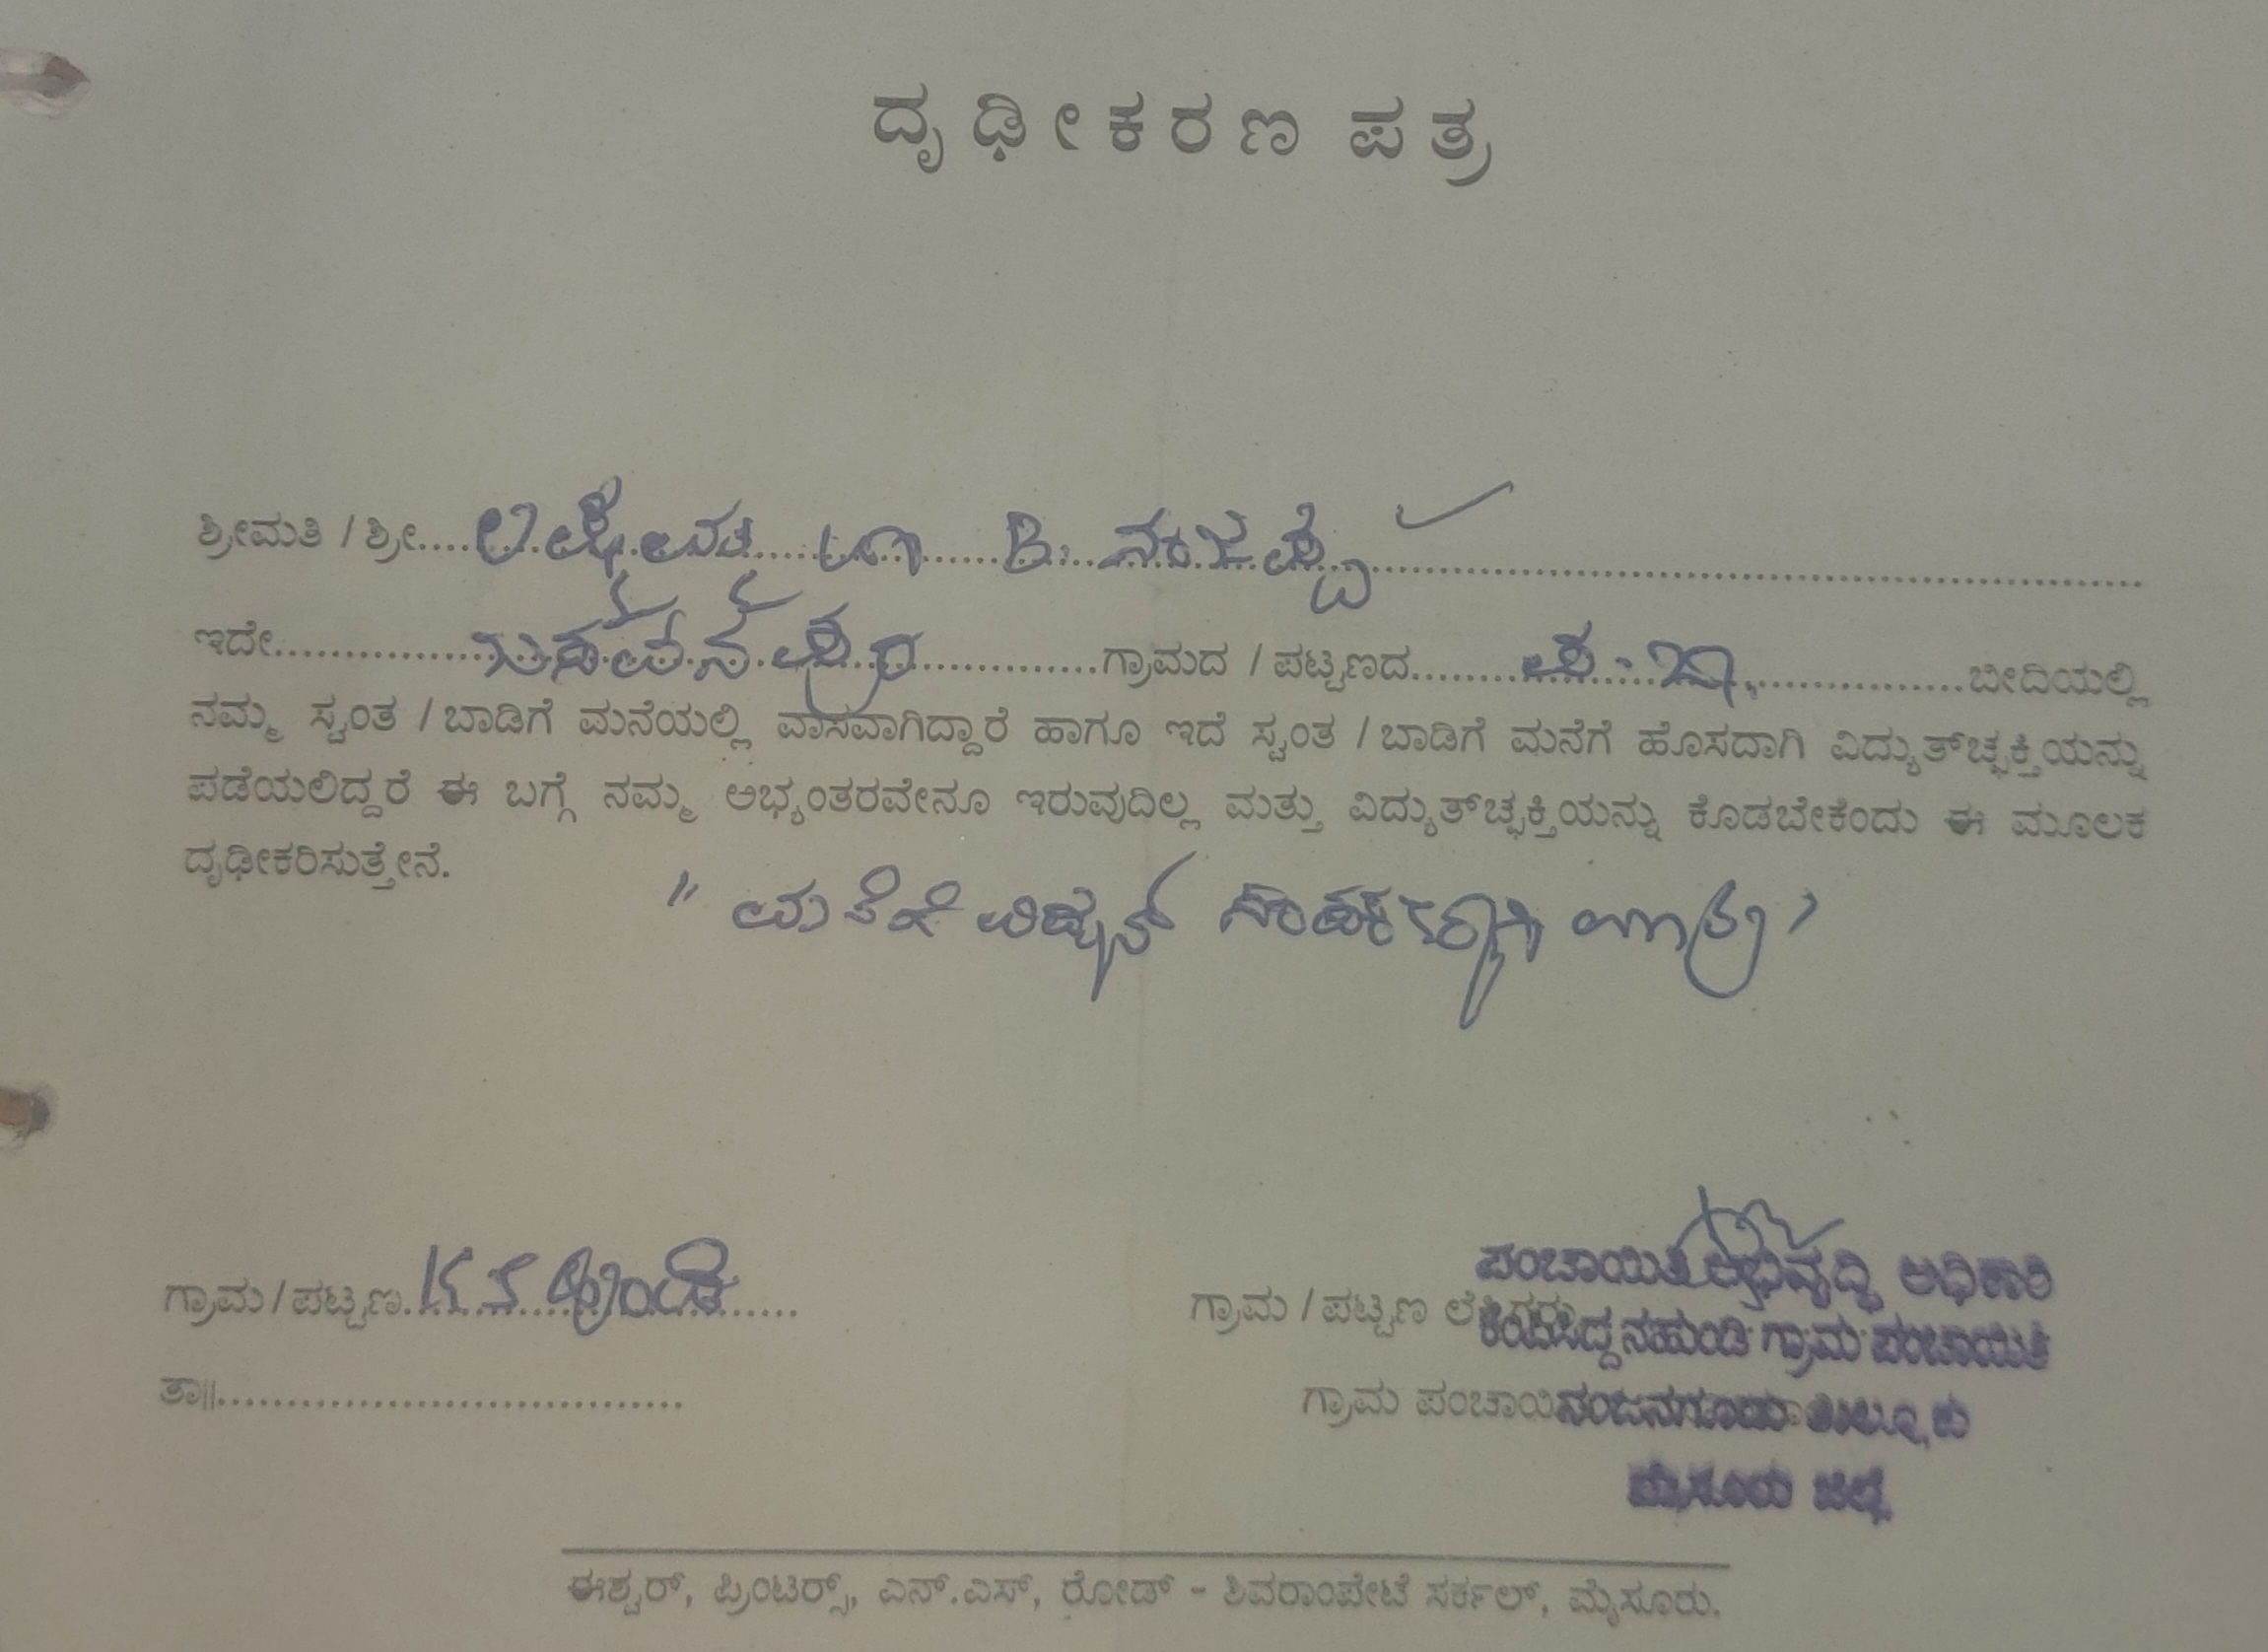 ದೃಢೀಕರಣ ಪತ್ರ
ಶ್ರೀಮತಿ / ಶ್ರೀ.... B. ನಾಗಪ್ಪ
ಇದೇ............ಗ್ರಾಮದ / ಪಟ್ಟಣದ............ಬೀದಿಯಲ್ಲಿ
ನಮ್ಮ ಸ್ವಂತ / ಬಾಡಿಗೆ ಮನೆಯಲ್ಲಿ ವಾಸವಾಗಿದ್ದಾರೆ ಹಾಗೂ ಇದೆ ಸ್ವಂತ / ಬಾಡಿಗೆ ಮನೆಗೆ ಹೊಸದಾಗಿ ವಿದ್ಯುತ್‌ಚ್ಛಕ್ತಿಯನ್ನು
ಪಡೆಯಲಿದ್ದರೆ ಈ ಬಗ್ಗೆ ನಮ್ಮ ಅಭ್ಯಂತರವೇನೂ ಇರುವುದಿಲ್ಲ ಮತ್ತು ವಿದ್ಯುತ್‌ಚ್ಛಕ್ತಿಯನ್ನು ಕೊಡಬೇಕೆಂದು ಈ ಮೂಲಕ
ದೃಢೀಕರಿಸುತ್ತೇನೆ.
" ಮನೆಗೆ ವಿದ್ಯುತ್ ಮಾತ್ರ "
ಗ್ರಾಮ / ಪಟ್ಟಣ. K S ಹುಂಡಿ
ಪಂಚಾಯಿತಿ ಅಭಿವೃದ್ಧಿ ಅಧಿಕಾರಿ
ಗ್ರಾಮ / ಪಟ್ಟಣ
ಗ್ರಾಮ ಪಂಚಾಯಿತಿ
ತಾ||..................
ಗ್ರಾಮ ಪಂಚಾಯಿ ನಂಜನಗೂಡು ತಾಲ್ಲೂಕು
ಮೈಸೂರು ಜಿಲ್ಲೆ
ಈಶ್ವರ್, ಪ್ರಿಂಟರ್ಸ್, ಎನ್.ಎಸ್, ರೋಡ್ - ಶಿವರಾಂಪೇಟೆ ಸರ್ಕಲ್, ಮೈಸೂರು.